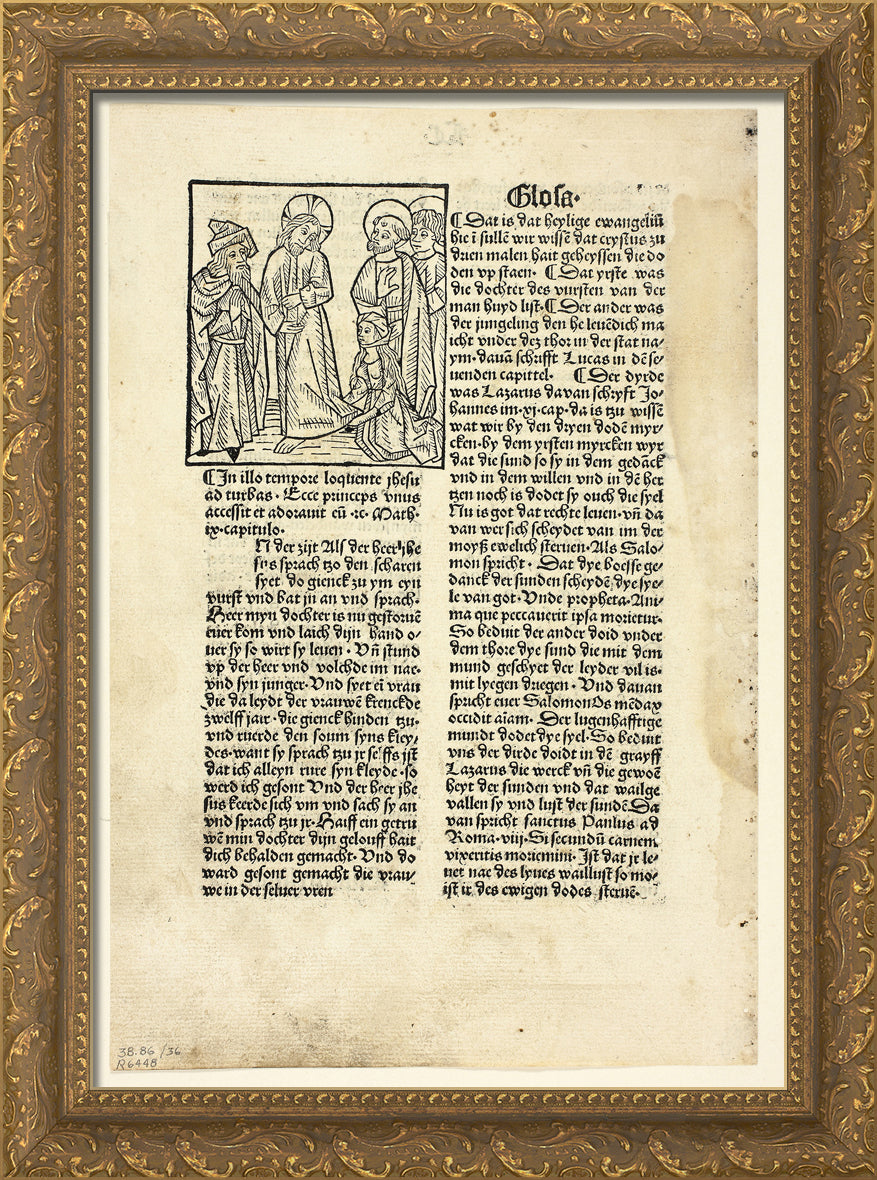 ⁌ In illo tempore loquente jhesu
ad turbas · Ecce princeps vnus
accessit et adorauit eū ·⁊c· Math·
ix·capitulo·
N der zijt Alſ der heer jhe
ſus ſprach tzo den ſcharen
ſyet do gienck zu ym eyn
vurſt vnd bat jn an vnd ſprach·
Heer myn dochter is nu geſtoruē
euer kom vnd laich dijn hand o⸗
uer ſy ſo wirt ſy leuen · Vn̄ ſtund
vp der heer vnd volchde im nae·
vnd ſyn junger· Vnd ſyet eī vrau
die da leydt der vrauwē krenckde
zwelff jair · die gienck hinden tzu·
vnd ruerde den ſoum ſyns kley⸗
des· want ſy ſprach tzu jr ſelffs jſt
dat ich alleyn rure ſyn kleyde · ſo
werd ich geſont Vnd der heer jhe
ſus keerde ſich vm vnd ſach ſy an
vnd ſprach tzu jr· Haiff ein getru
wē min dochter dijn gelouff hait
dich behalden gemacht· Vnd do
ward geſont gemacht die vrau⸗
we in der ſeluer vren
Gloſa·
⁌ Dat is dat heylige ewangeliū
hie ī ſullē wir wiſſē dat cryſtus zu
dryen malen hait geheyſſen die do
den vp ſtaen· ⁌ Dat yrſte was
die dochter des vurſten van der
man huyd liſt· ⁌ Der ander was
der jungeling den he leuēdich ma
icht vnder dez thor in der ſtat na⸗
ym· dauā ſchrifft Lucas in dē ſe⸗
uenden capittel· ⁌ Der dyrde
was Lazarus davan ſchryft Jo⸗
hannes im·xj·cap·da is tzu wiſſē
wat wir by den dryen dodē myr⸗
cken· by dem yrſten myrcken wyr
dat die ſund ſo ſy in dem gedāck
vnd in dem willen vnd in dē her
tzen noch is dodet ſy ouch die ſyel
Nu is got dat rechte leuen· vn̄ da
van wer ſich ſcheydet van im der
moyß ewelich ſteruen· Als Salo⸗
mon ſpricht · Dat dye boeſſe ge⸗
danck der ſunden ſcheydē dye ſye⸗
le van got· Vnde propheta· Ani⸗
ma que peccauerit ipſa morietur·
So beduit der ander doid vnder
dem thore dye ſund die mit dem
mund geſchyet der leyder vil is·
mit lyegen driegen · Vnd dauan
ſpricht euer Salomon Os mēdax
occidit aīam· Der lugenhafftige
mundt dodet dye ſyel· So beduit
vns der dirde doidt in dē grayff
Lazarus die werck vn̄ die gewoē
heyt der ſunden vnd dat wailge
vallen ſy vnd luſt der ſundē Da
van ſpricht ſanctus Paulus ad
Roma·viij· Si ſecundū carnem
vixeritis moriemini· Iſt dat jr le⸗
uet nae des lyues wailluſt ſo mo⸗
iſt ir des ewigen dodes ſteruē·
38.86 /36
R6448